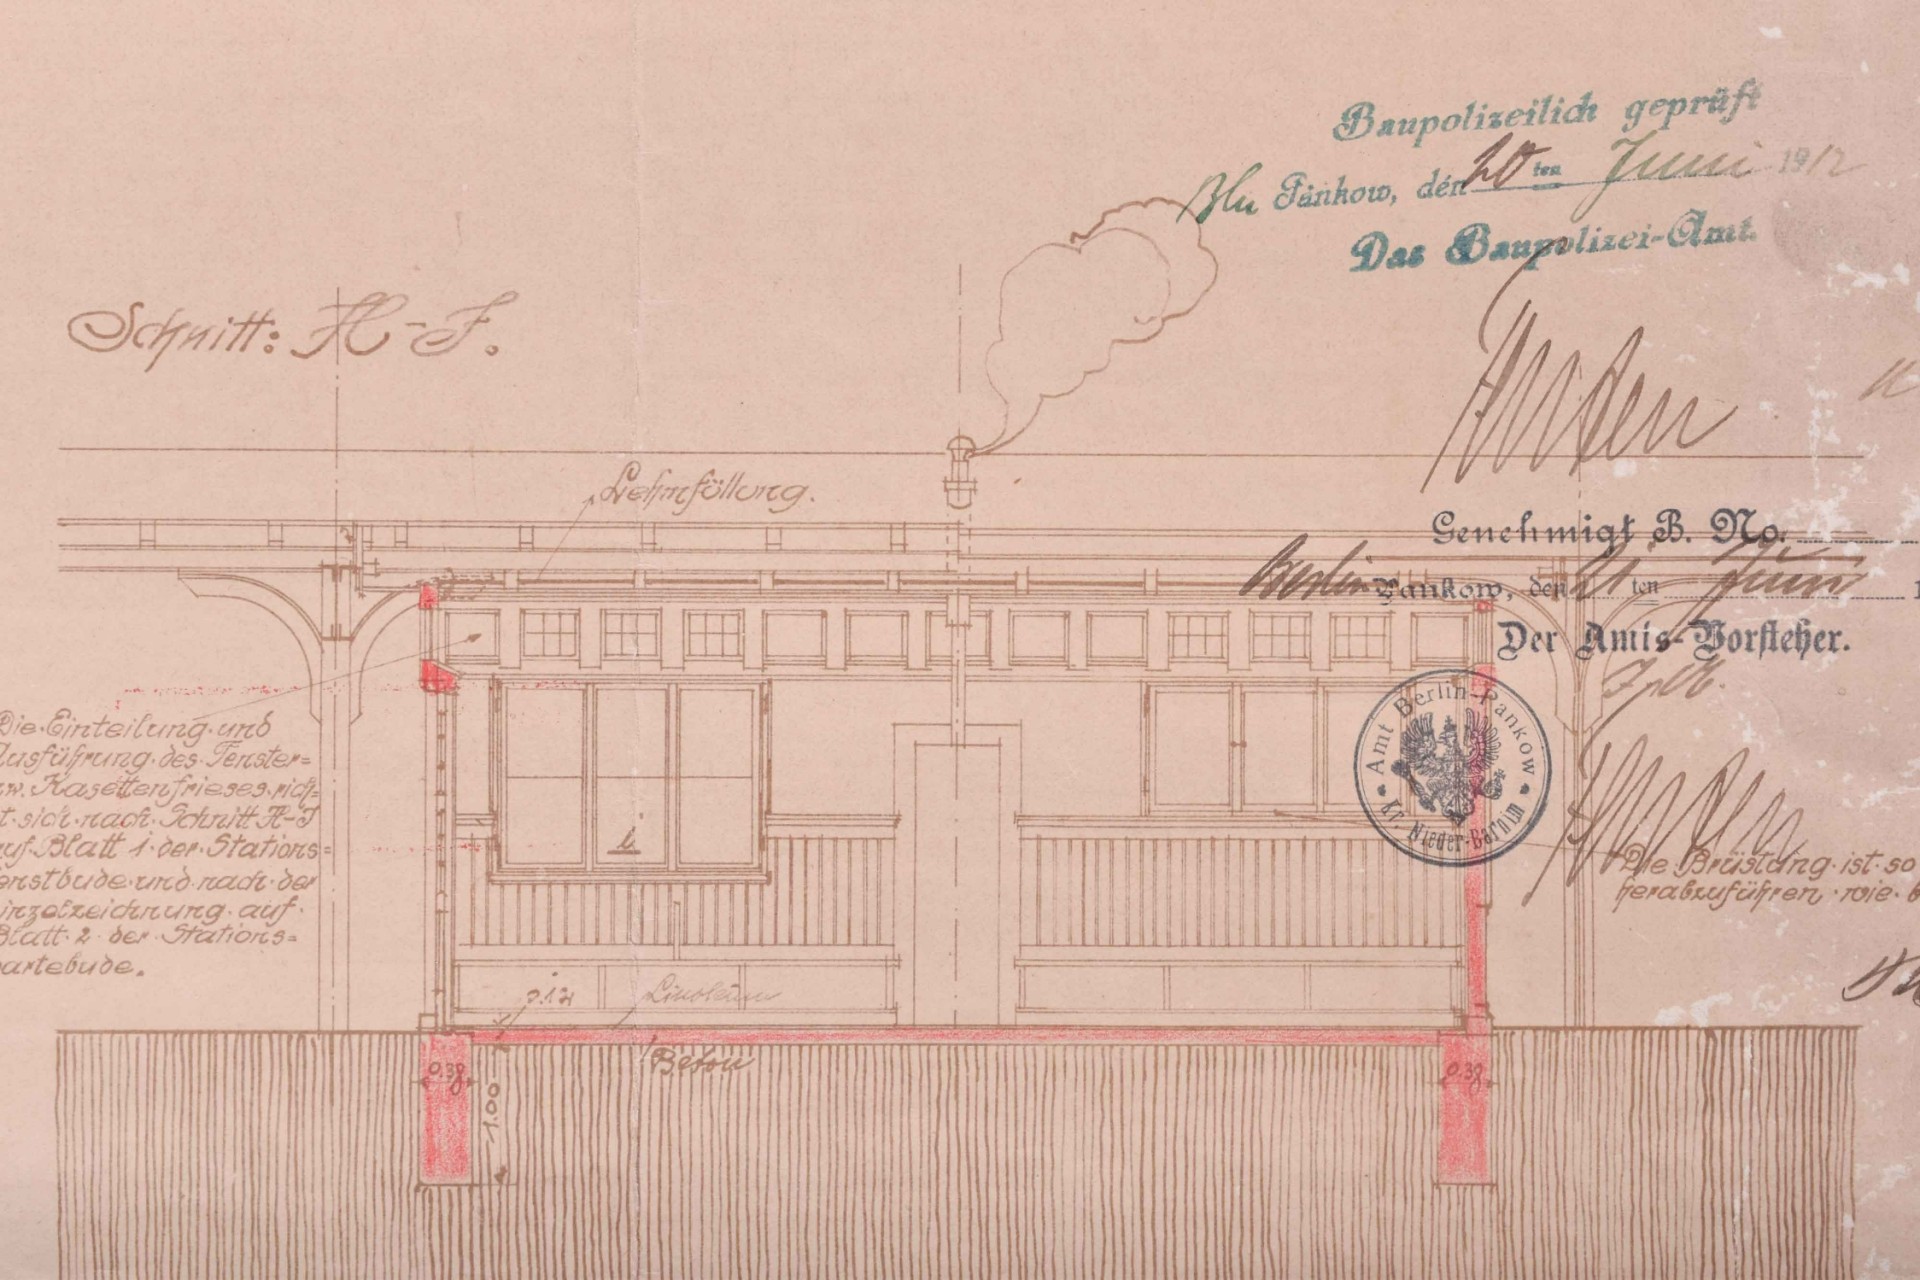 Baupolizeilich geprüft
Pankow, den 20 ten Juni 1912
Das Baupolizei-Amt.
Schnitt: H-J.
Lehmfüllung.
Genehmigt B. No.
Berlin-Pankow, den 21 ten Juni 1
Der Amts-Vorsteher.
Amt Berlin-Pankow
Kr. Nieder-Barnim
Die Einteilung und
Ausführung des Fenster=
w. Kasettenfrieses rich=
t sich nach Schnitt H-J
auf Blatt 1 der Stations=
enstbude und nach der
inzelzeichnung auf
Blatt 2 der Stations=
artebude.
i
Die Brüstung ist so
herabzuführen wie b
0.12
Linoleum
Beton
0.38
0.38
1.00